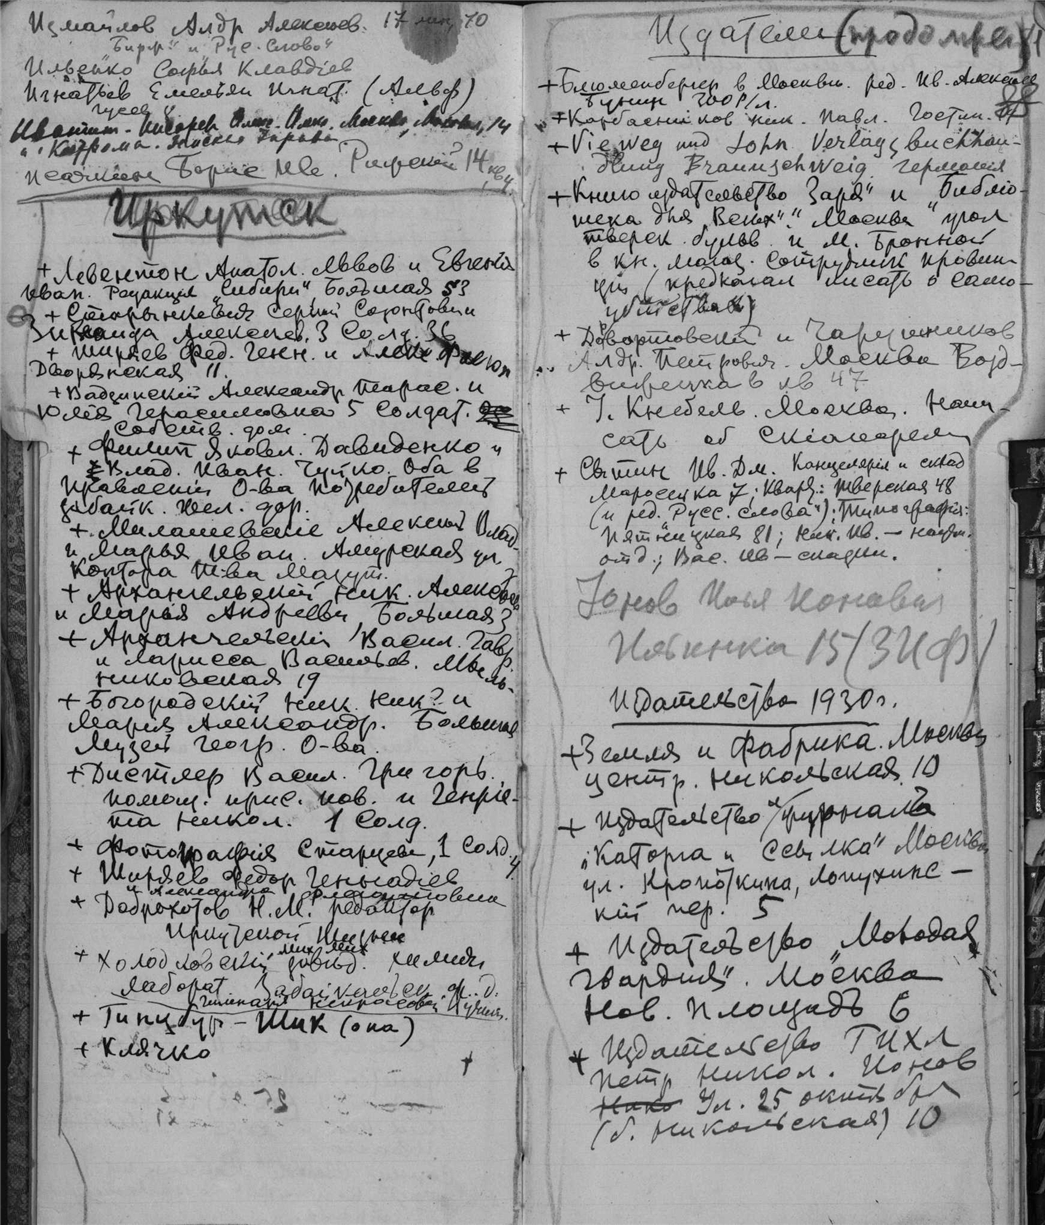 Измайлов Алдр Алексеев. 17 лин, 70
"Бирж" и "Рус. Слово"
Ильейко Софья Клавдиев
Игнатьев Емельян Игнат. (Альф)
Гусев
Кострома.
Борис Ив. Рижский 14, кв 4
Иркутск
+ Левентон Анатол. Львов и Евгенія
Иван. Редакция "Сибири" Большая 53
+ Сергий Созонтович
Зинаида Алексеев. 3 Солд. 36
+ Ширяев Фед. Генн. и
Дворянская 11.
+ Вадзинский Александр Тарас. и
Юлія Герасимовна 5 Солдат.
Собств. дом.
+ Филип Яковл. Давиденко и
Влад. Иван. Чупко. Оба в
Правленіи О-ва Потребителей
Забайк. Жел. дор.
+ Милашевские Алексей Влад.
и Марья Иван. Амурская ул.
Контора Т-ва Мазут.
+ Архангельскій Ник. Алексеев
и Марья Андреевн, Большая 3
+ Архангельскій Васил. Гавр.
и Ларисса Васильев. Мыль-
никовская 19
+ Богородскій Ник. Ник? и
Мария Александр. Большая
Музей Геогр. О-ва
+ Дистлер Васил. Григорь.
помощ. прис. пов. и Генріе-
та Никол. 1 Солд.
+ Фотографія Старцева, 1 Солд 4
+ Ширяев Федор Геньадіев
и Александра
+ Доброхотов Н.М. редактор
Иркутской Жизни
+ Холодковскій Давид. Химич
лаборат. Забайкальск. ж. д.
+ Гинцбург - Шик (она)
+ Клячко
Издатели (продолжен)
+ Блюменберг в Москвы. ред. Ив. Алексеев
Бунин 200 р/л.
+ Карбасников Ник. Павл. Гостин.
+ Vieweg und Sohn. Verlagsbuchhan-
dlung Braunschweig. Германія
+ Книгоиздательство "Заря" и "Библіо-
тека для Всех". Москва угол
Тверск. бульв. и М. Бронной
в кн. магаз. Сотрудник провин-
ціи (предлагал писать о само-
убийствах)
+ Дороватовский и Чарушников
Алдр. Петрович. Москва Возд-
виженка в
47
+ І. Кнебель. Москва. Напи-
сать об
+ Сытин Ив. Дм. Канцелярія и склад
Маросейка 7; Кварт: Тверская 48
(и ред. "Русс. слова"); Типографія:
Пятницкая 81; Ник. Ив. –
отд.; Вас. Ив –
Ионов Илья Ионович
Ильинка 15 (ЗИФ)
Издательства 1930 г.
+ Земля и Фабрика. Москва
центр. Никольская 10
+ Издательство журнала
"Каторга и Ссылка" Москва
ул. Кропоткина, Лопухинс-
кий пер. 5
+ Издательство "Молодая
гвардия". Москва
Нов. площадь 6
+ Издательство ГИХЛ
Петр Никол. Ионов
Ул. 25 октября
(б. Никольская) 10